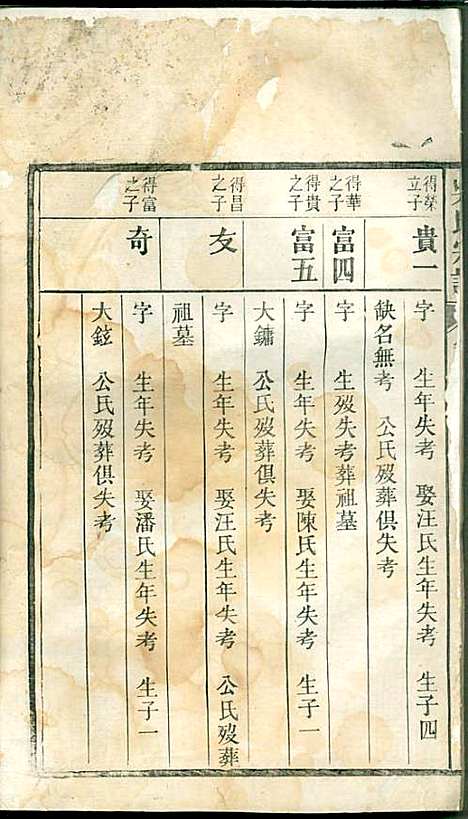 得榮
立子
貴一
字 生年失考 娶汪氏生年失考 生子四
缺名無考 公氏歿葬俱失考
得華
之子
富四
字 生歿失考葬祖墓
得貴
之子
富五
字 生年失考 娶陳氏生年失考 生子一
大鏞 公氏歿葬俱失考
得昌
之子
友
字 生年失考 娶汪氏生年失考 公氏歿葬
祖墓
得富
之子
奇
字 生年失考 娶潘氏生年失考 生子一
大鉉 公氏歿葬俱失考